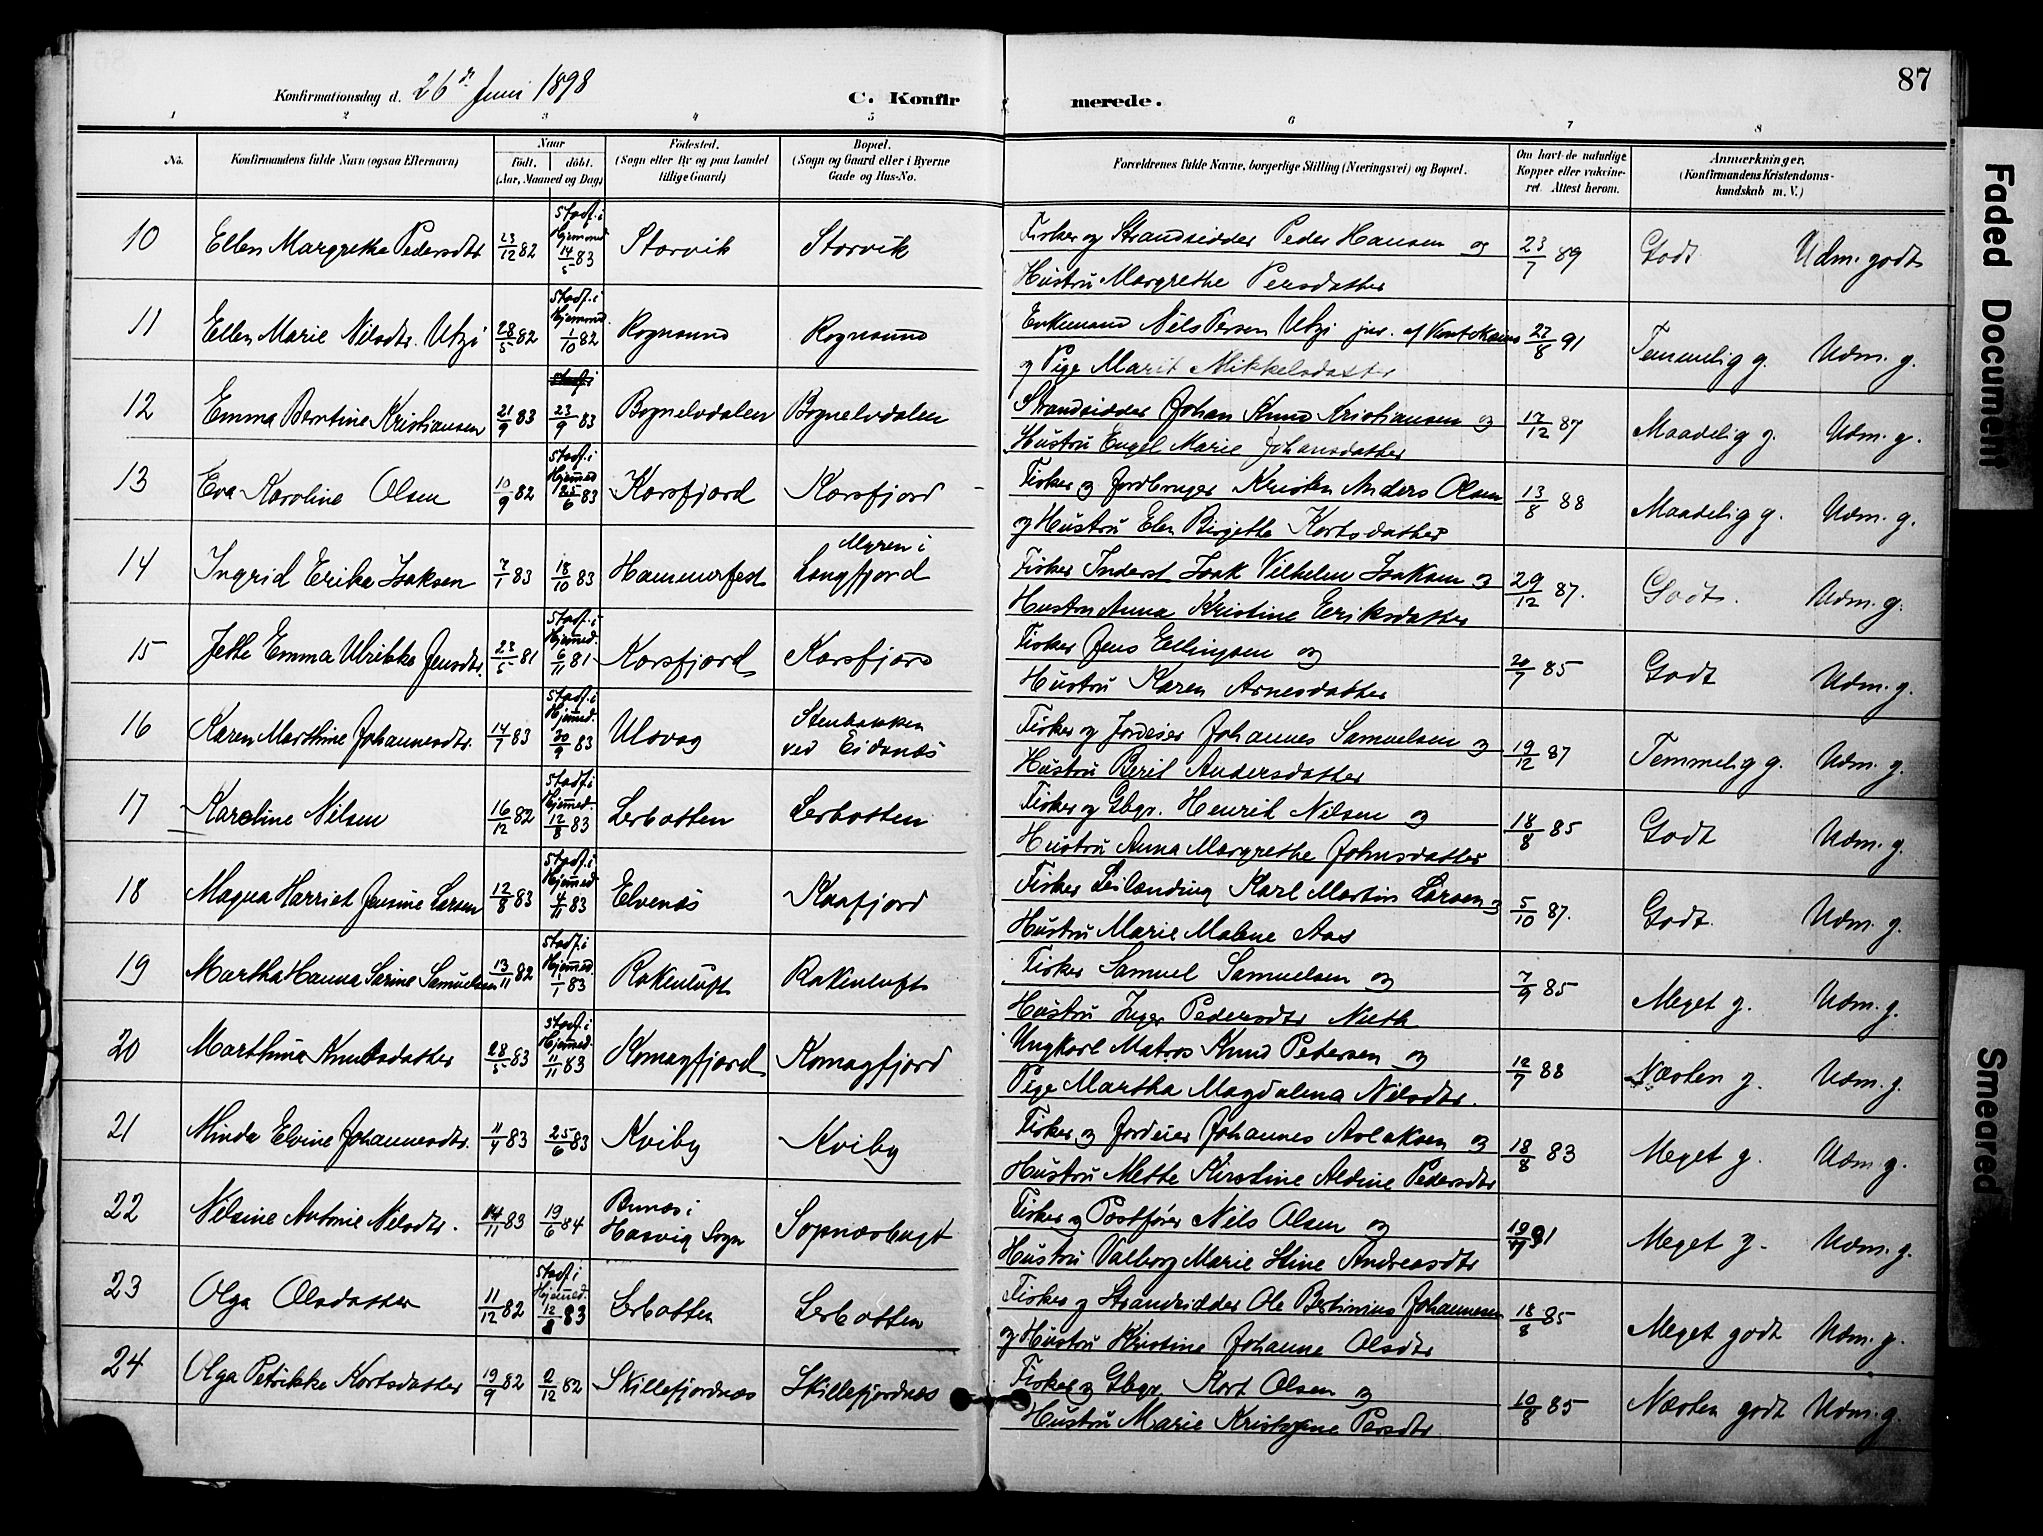 87
Konfirmationsdag d. 26de Juni 1898 C. Konfirmerede.
1 2 3 4 5 6 7 8
No. Konfirmandens fulde Navn (ogsaa Efternavn) Naar født. døbt. (Aar, Maaned og Dag) Fødested. (Sogn eller By og paa Landet tillige Gaard) Bopæl. (Sogn og Gaard eller i Byerne Gade og Hus-No. Forældrenes fulde Navne, borgerlige Stilling (Næringsvei) og Bopæl. Om havt de naturlige Kopper eller vakcineret. Attest herom. Anmærkninger. (Konfirmandens Kristendomskundskab m. V.)
10 Ellen Margrethe Pedersdtr 23/12 82 Stadf. i Hjemmed. 14/5 83 Storvik Storvik Fisker og Strandsidder Peder Hansen og 23/7 89 Godt Udm. godt
Hustru Margrethe Persdatter
11 Ellen Marie Nilsdtr. Utzi 28/5 82 Stadf. i Hjemmed. 1/10 82 Rognsund Rognsund Enkemand Nils Persen Utzi jnr. af Kautokeino 27/8 91 Temmelig g. Udm. g.
og Pige Marit Mikkelsdatter
12 Emma Berntine Kristiansen 21/9 83 23/9 83 Bognelvdalen Bognelvdalen Strandsidder Johan Knud Kristiansen og 17/12 87 Maadelig g. Udm. g.
Hustru Engel Marie Johansdatter
13 Eva Karoline Olsen 10/9 82 Stadf. i Hjemmed 6 83 Korsfjord Korsfjord Fisker og Jordbruger Kristen Anders Olsen 13/8 88 Maadelig g. Udm. g.
og Hustru Elen Birgithe Kortsdatter
14 Ingrid Erika Isaksen 7/1 83 18/10 83 Hammerfest Myren i Langfjord Fisker Inderst Isak Vilhelm Isaksen og 29/12 87. Godt. Udm. g.
Hustru Anna Kristine Eeriksdatter
15 Jette Emma Ulrikke Jensdtr. 23/5 81 Stadf. i Hjemmed. 6/11 81 Korsfjord Korsfjord Fisker Jens Ellingsen og 20/7 85 Godt Udm. g.
Hustru Karen Arnesdatter
16 Karen Marthine Johannesdtr. 14/7 83 Stadf. i Hjemmed. 30/9 83 Ulsvag Stenbakken ved Eidsnæs Fisker og Jordeier Johannes Samuelsen og 19/12 87 Temmelig g. Udm. g.
Hustru Berit Andersdatter
17 Karoline Nilsen 16/12 82 Stadf. i Hjemmed. 12/8 83 Lerbotten Lerbotten Fisker og Gbgr. Henrik Nilsen og 18/8 85 Godt Udm. g.
Hustru Anna Margrethe Johnsdatter
18 Magna Harriet Jensine Larsen 12/8 83 Stadf. i Hjemmed 4/11 83 Elvenæs Kaafjord Fisker Leilænding Karl Martin Larsen og 5/10 87. Godt. Udm. g.
Hustru Marie Malene Aas
19 Martha Hanna Sarine Samuelsen 13/11 82 Stadf. i Hjemmed. 1/1 83 Rakenluft Rakenluft Fisker Samuel Samuelsen og 7/9 85 Meget g. Udm. g.
Hustru Inger Pedersdtr
20 Marthina Knudsdatter 28/5 83 Stadf. i Hjemmed. 11/11 83 Komagfjord Komagfjord Ungkarl Matros Knud Pedersen og 12/7 88 Næsten g. Udm. g.
Pige Martha Magdalena Nilsdtr.
21 Minda Elvine Johannesdtr. 11/4 83 25/6 83 Kviby Kviby Fisker og Jordeier Johannes Aslaksen og 18/8 83 Meget g. Udm. g.
Hustru Mette Kirstine Aldine Pedersdtr
22 Nilsine Antonie Nilsdtr. 14/11 83 19/6 84 Bunæs i Hasvig Sogn Sopnæsbugt Fisker og Postfører Nils Olsen og 91 Meget g. Udm. g.
Hustru Valborg Marie Stine Andreasdtr
23 Olga Olsdatter 11/12 82 Stadf. i Hjemmed. 12/8 83 Lerbotten Lerbotten Fisker og Strandsidder Ole Bertinius Johannesen 18/8 85 Meget godt Udm. g.
og Hustru Kristine Johanne Olsdtr
24 Olga Petrikke Kortsdatter 19/9 82 2/12 82 Skillefjordnæs Skillefjordnæs Fisker og Gbgr. Kort Olsen og 10/8 85 Næsten godt Udm. g.
Hustru Marie Kristine Persdtr.
Faded Document
Smeared